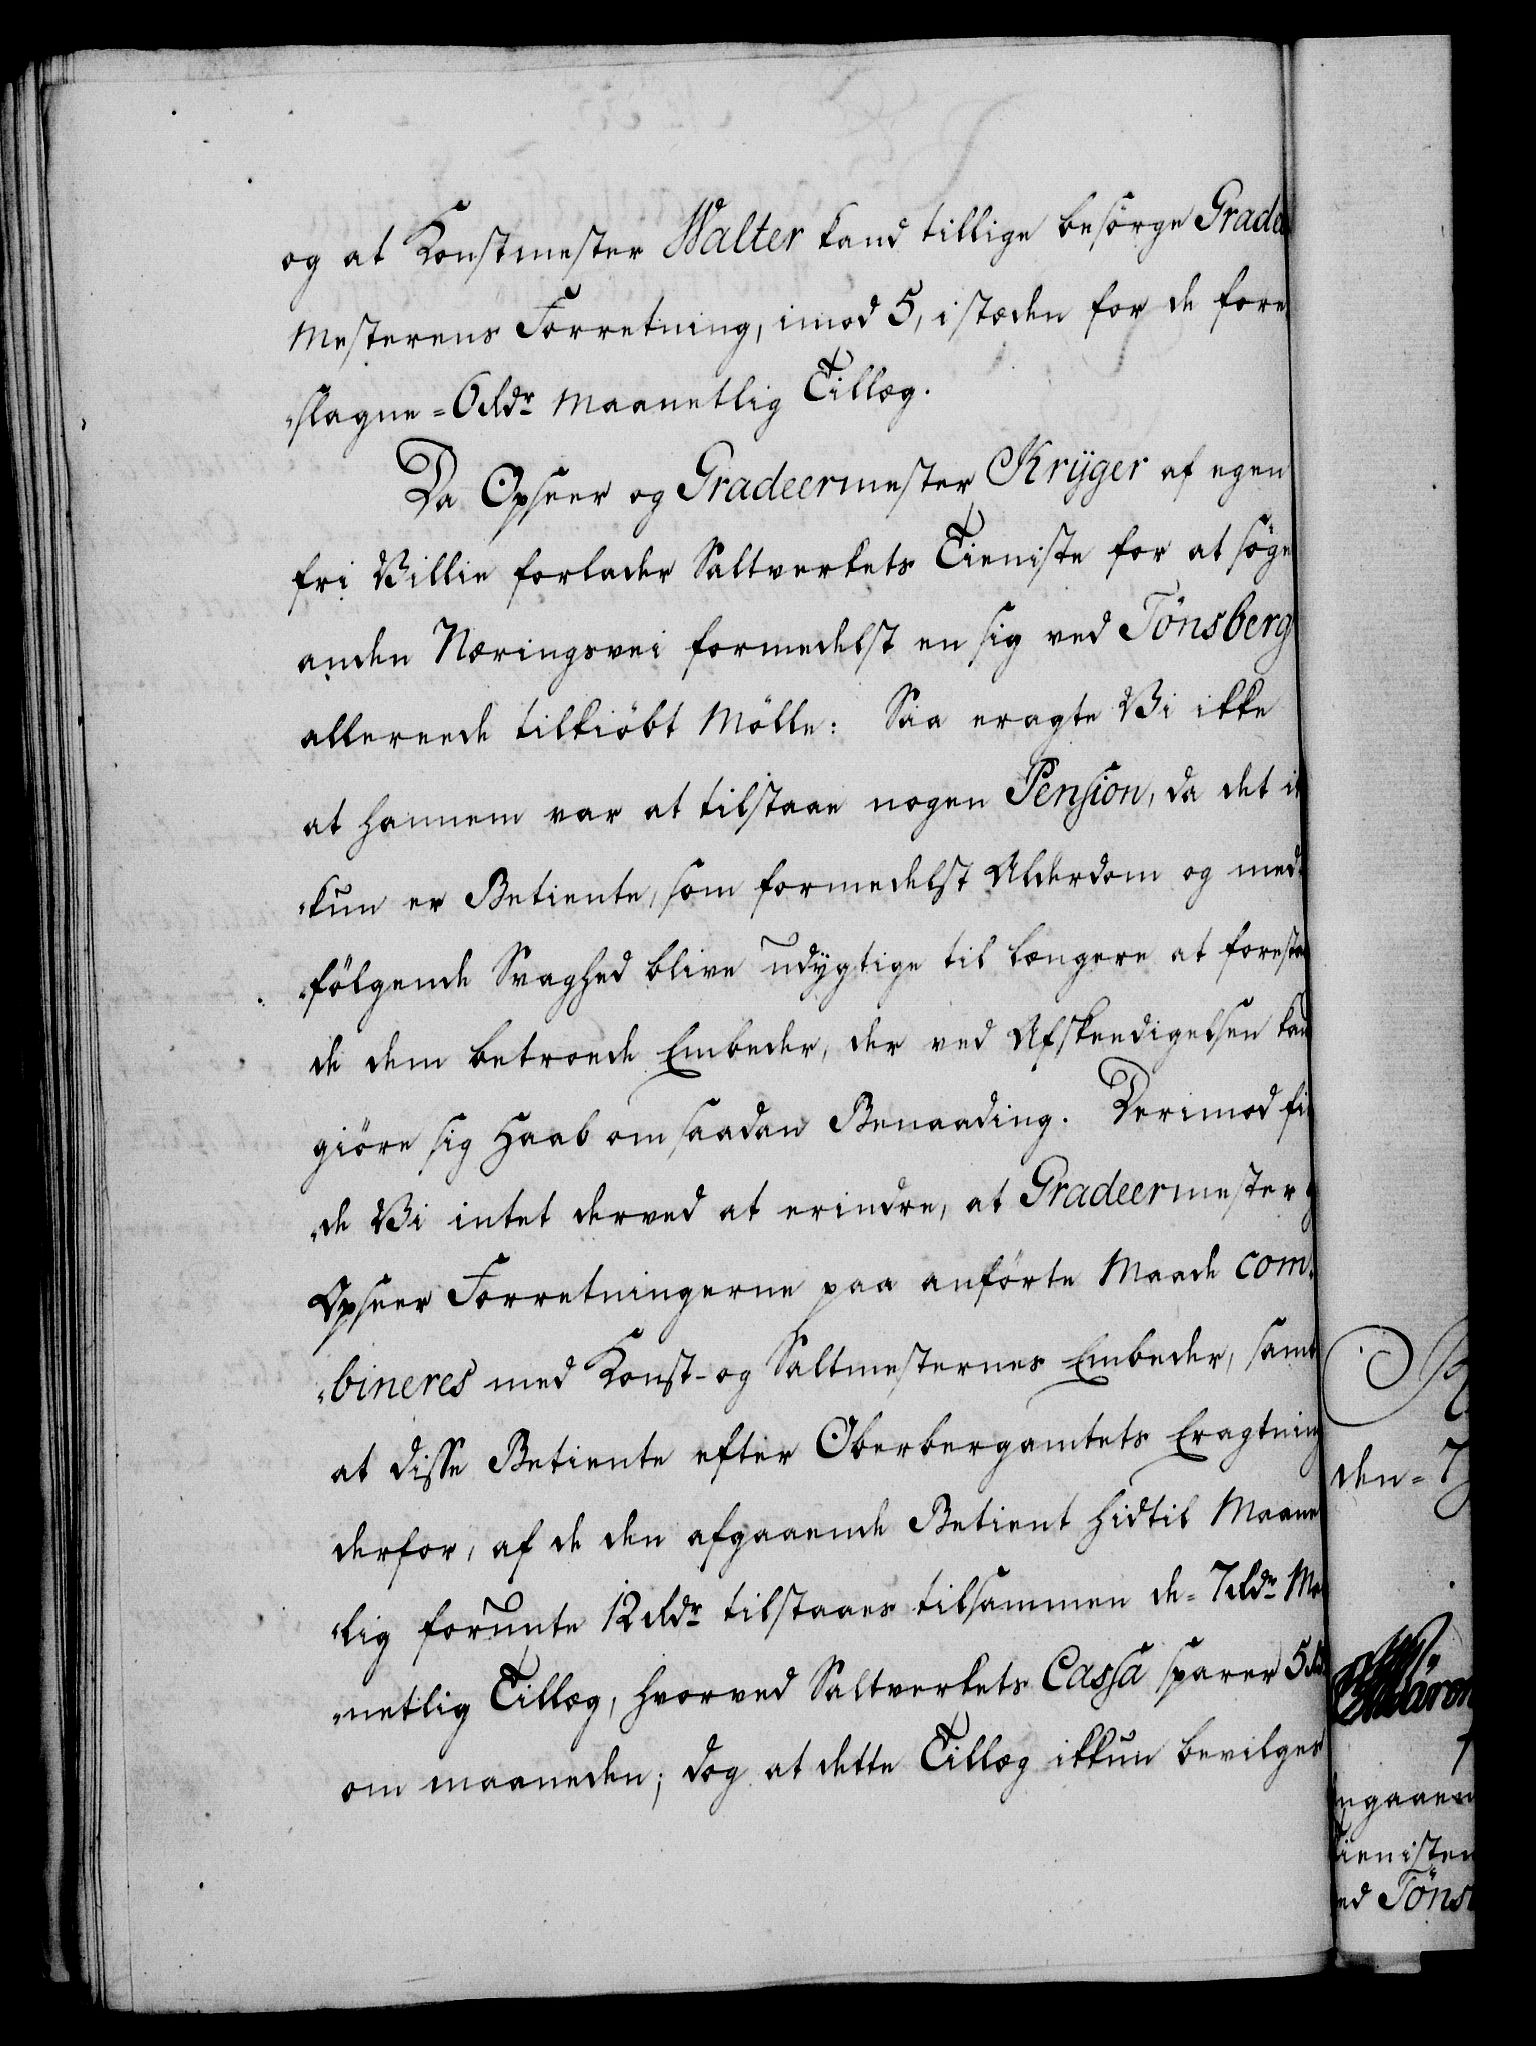 og at Konstmester Walter kand tillige besörge Gradee
Mesterens Forretning, imod 5, i stæden for de fore
„slagne = 6 Rdr maanetlig Tillæg.
Da Opseer og Gradeermester Kryger af egen
fri Villie forlader Saltverkets Tieniste for at söge
anden Næringsvei formedelst en sig ved Tönsberg
allereede tilkiöbt Mölle: Saa eragte Vi ikke
at hannem var at tilstaae nogen Pension, da det ik
„kun er Betiente, som formedelst Alderdom og med„
„fölgende Svaghed blive udygtige til længere at foresta
de dem betroede Embeder, der ved Afskeedigelsen kan
giöre sig Haab om saadan Benaading. Derimod fi
„de Vi intet derved at erindre, at Gradeermester
Opseer Forretningerne paa anförte Maade com„
„bineres med Konst- og Saltmesternes Embeder, samt
at disse Betiente efter Oberbergamtets Eragtning
derfor, af de den afgaaende Betient hidtil Maane
„lig forunte 12 Rdr tilstaaes tilsammen de = 7 Rdr Ma
„netlig Tillæg, hvorved Saltverkets Cassa sparer 5 Rd
om maaneden; dog at dette Tillæg ikkun bevilges
den = 7
ngaaen
ienisten
ed Töns